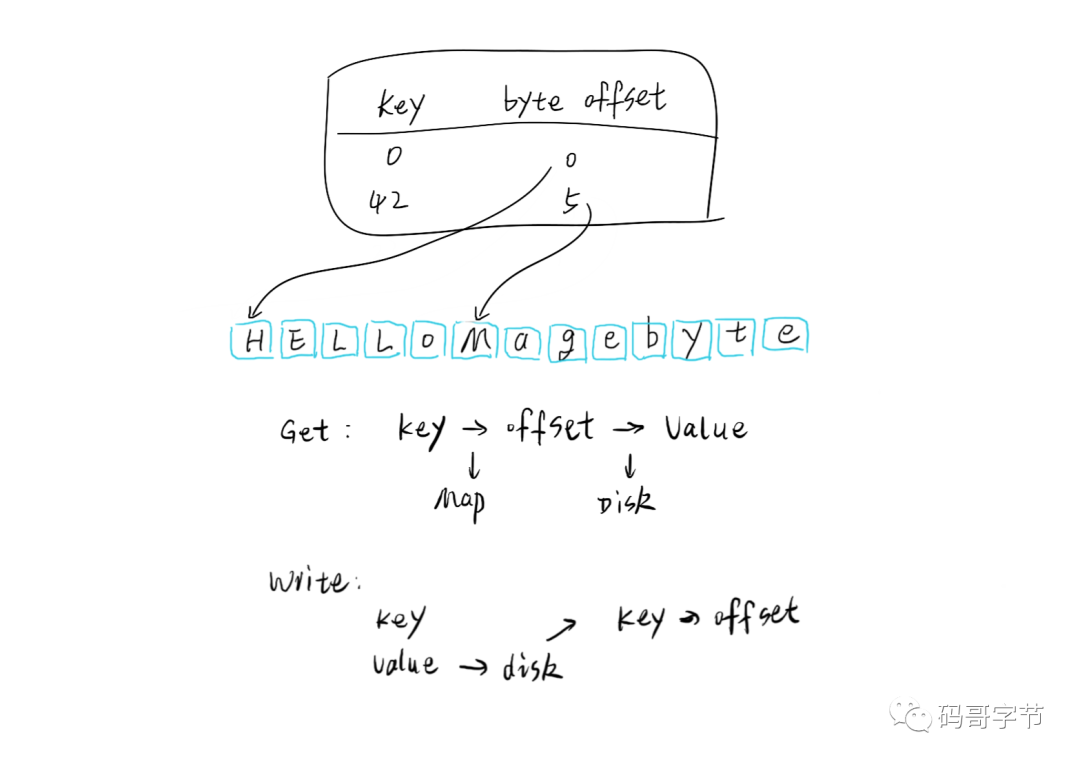 key byte offset
0 0
42 5
HELLOMagebyte
Get: key → offset → Value
↓ ↓
Map Disk
Write:
key key → offset
value → disk ↗
码哥字节